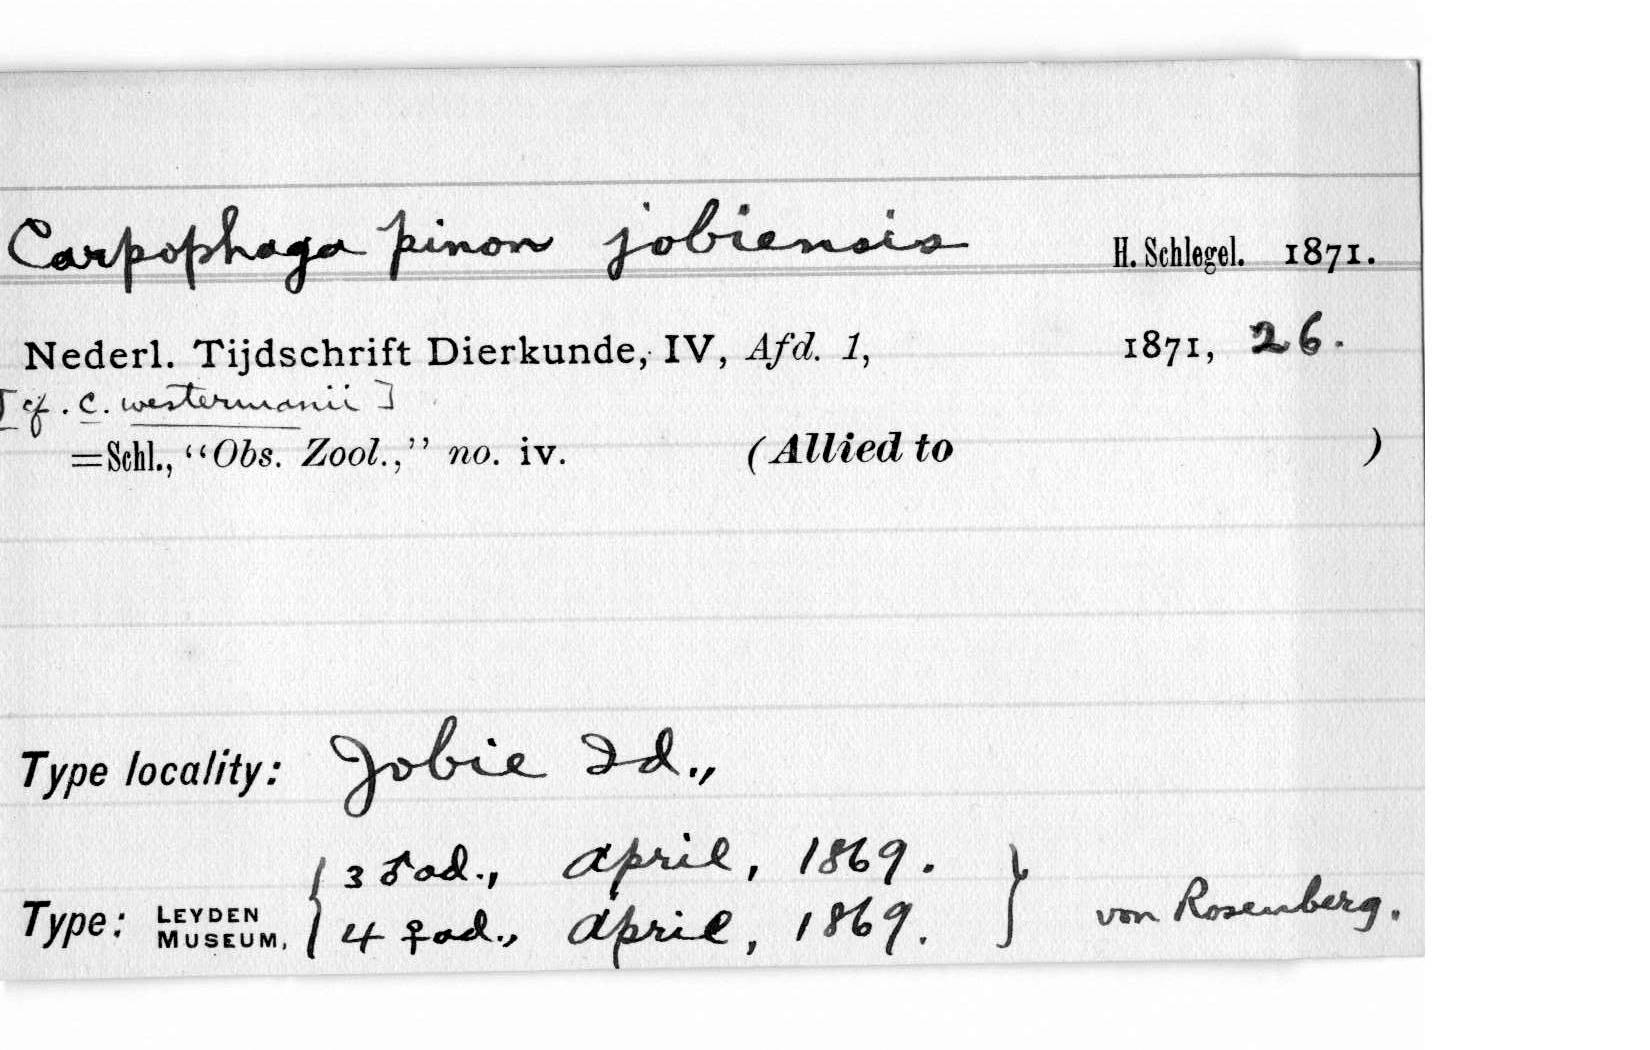 Carpophaga pinon jobiensis H. Schlegel. 1871.
Nederl. Tijdschrift Dierkunde, IV, Afd. 1, 1871, 26.
[cf. C. westermanii]
=Schl., “Obs. Zool.,” no. iv. (Allied to )
Type locality: Jobie Id.,
3 ♂ ad., April, 1869.
Type: LEYDEN MUSEUM, { } von Rosenberg.
4 ♀ ad., April, 1869.